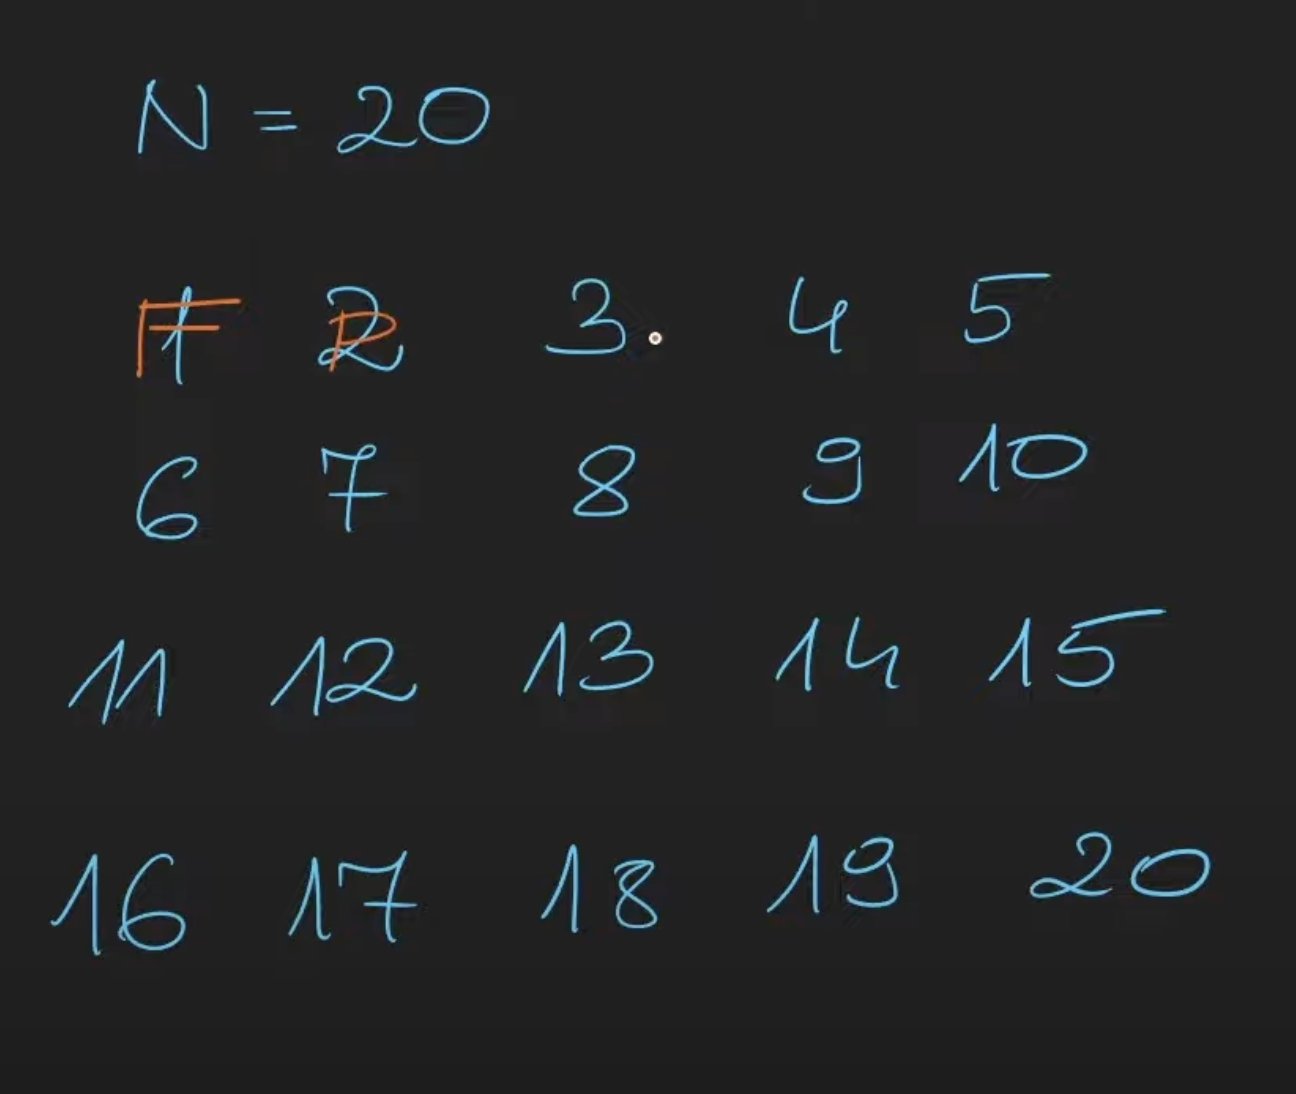 N = 20
1 F 2 P 3 4 5
6 7 8 9 10
11 12 13 14 15
16 17 18 19 20